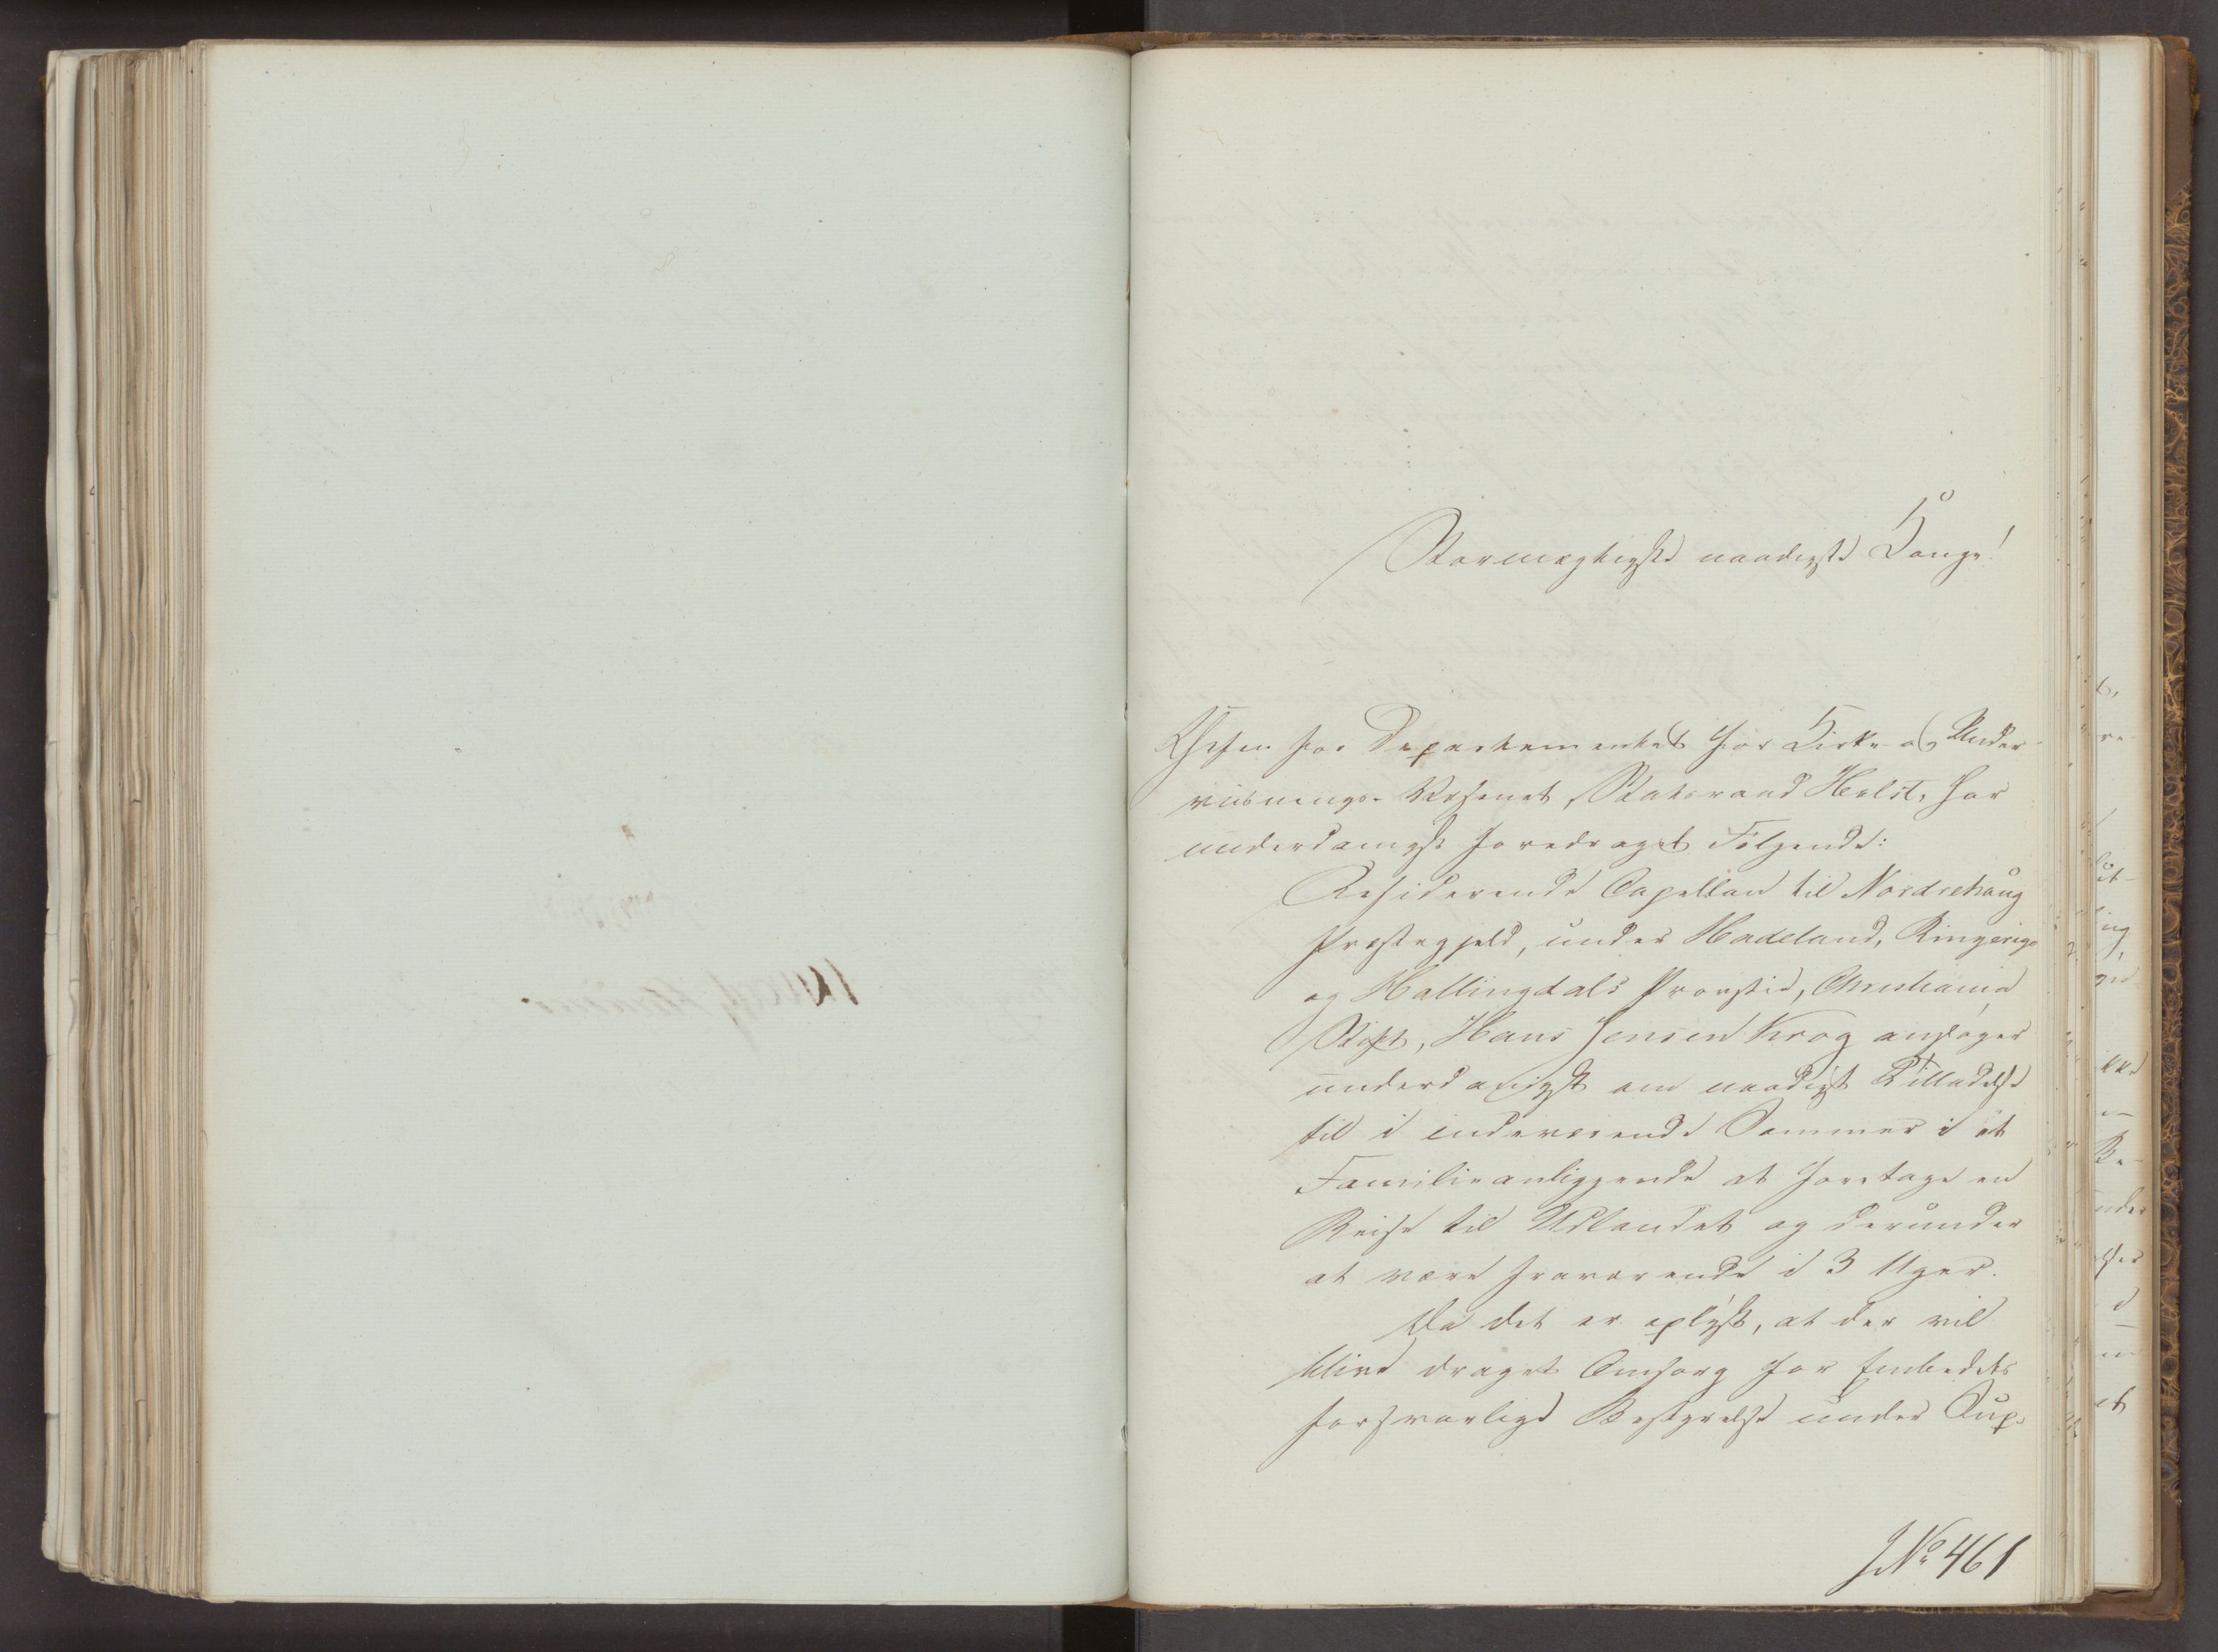 Stormægtigste naadigste Konge!
Chefen for Departementet for Kirke- og Under-
viisnings-Væsenet, Statsraad Holst, har
underdanigst foredraget Følgende:
Residerende Capellan til Norderhaug
Præstegjeld, under Hadeland, Ringerige
og Hallingdals Provsti, Christiania
Stift, Hans Jensen Krog ansøger
underdanigst om naadigst Tilladelse
til i indeværende Sommer i et
Familieanliggende at foretage en
Reise til Udlandet og derunder
at være fraværende i 3 Uger.
Da det er oplyst, at der vil
blive draget Omsorg for Embedets
forsvarlige Bestyrelse under Sup-
J.No 461